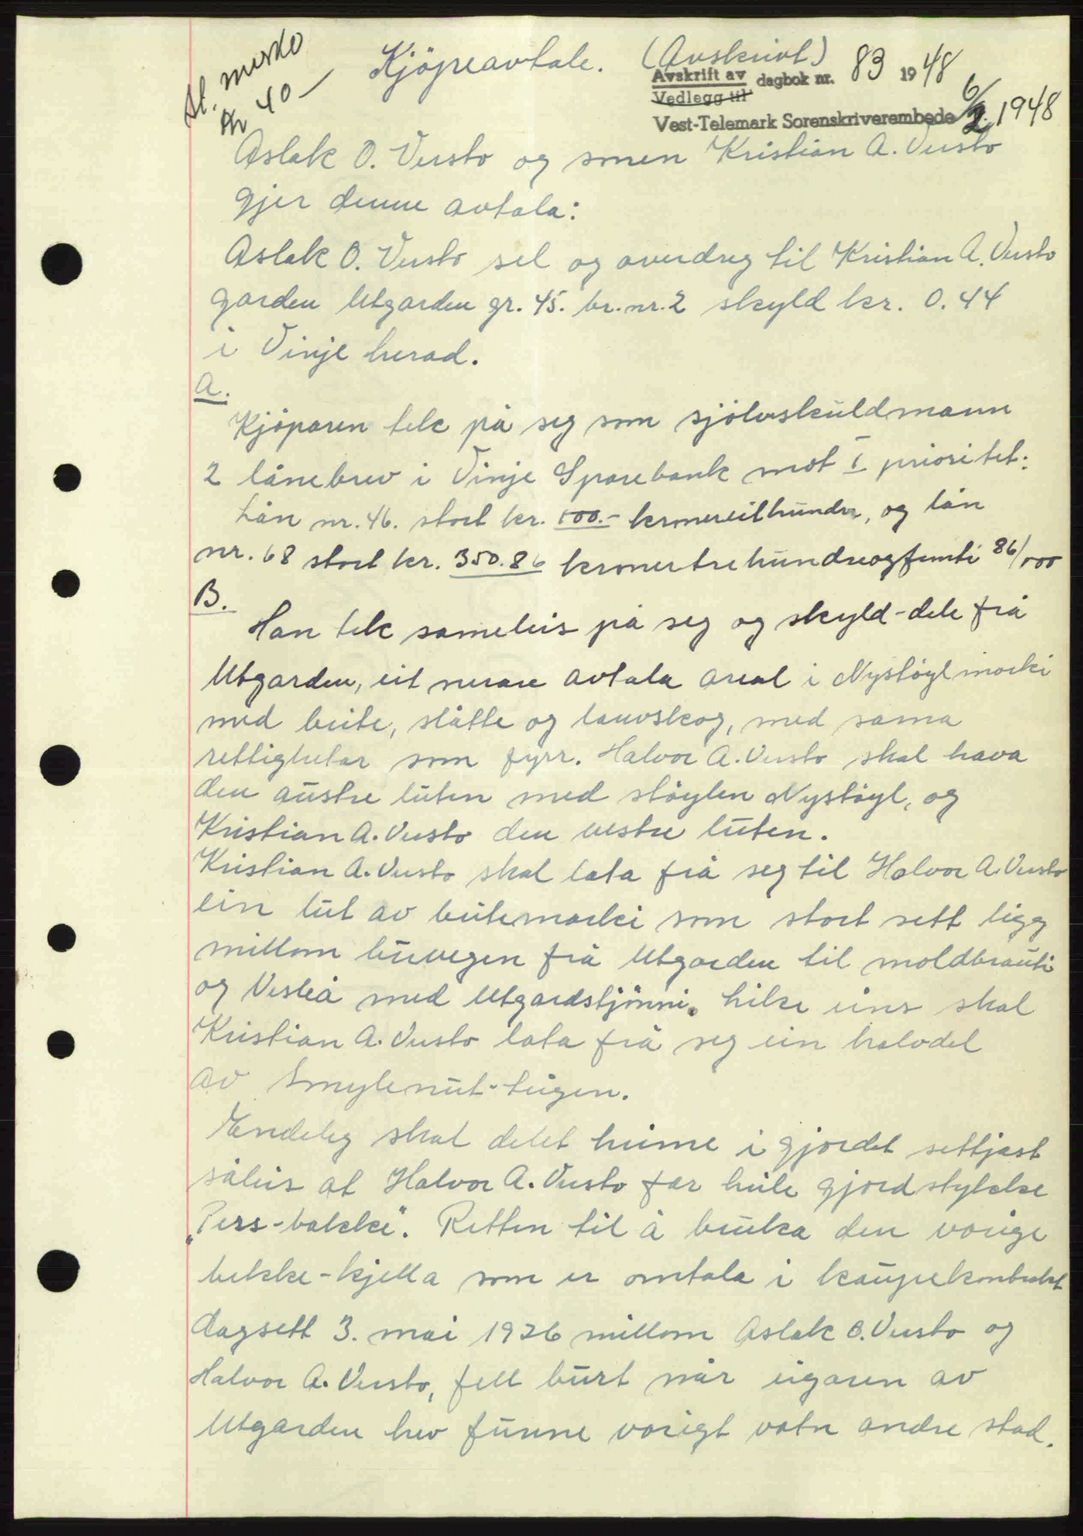 St. merke
kr 40 –
Kjöpeavtale. (Avskrivt)
Avskrift av dagbok nr. 83 1948
Vedlegg til
Vest-Telemark Sorenskriverembede 6/2. 1948
Aslak O. Vusto og sonen Kristian A. Vusto
gjer denne avtala:
Aslak O. Vusto sel og overdreg til Kristian A. Vusto
garden Utgarden gr. 45. br. nr. 2 skyld kr. 0.44
i Vinje herad.
A.
Kjöparen tek på seg som sjölvskuldmann
2 lånebrev i Vinje Sparebank mot I prioritet:
Lån nr. 46. stort kr. 100.- kronereitthundre, og lån
nr. 68 stort kr. 350.86 kronertrehundreogfemti 86/100
B.
Han tek sameleis på seg og skyld-dele frå
Utgarden, eit nerare avtala areal i Nystöylmorki
med beite, slåtte og lauvskog, med sama
rettigheter som fyrr. Halvor A. Vusto skal hava
den austre luten med stöylen Nystöyl, og
Kristian A. Vusto den vestre luten.
Kristian A. Vusto skal lata frå seg til Halvor A. Vusto
ein lut av beitemarki som stort sett ligg
millom buvegen frå Utgarden til moldbrauti
og Vesleå med Utgardstjönni. Likeeins skal
Kristian A. Vusto lata frå seg ein halvdel
av Smylenut-teigen.
Endeleg skal delet heime i gjordet settjast
såleis at Halvor A. Vusto får heile gjordstykkje
"Pers-bakke". Retten til å bruka den vorige
bekke-kjella som er omtala i kaupekontrakt
dagsett 3. mai 1926 millom Aslak O. Vusto og
Halvor A. Vusto, fell burt når eigaren av
Utgarden hev funne vorigt vatn andre stad.